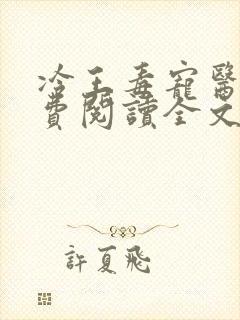 冷王毒寵醫
費閱讀全文
許夏飛